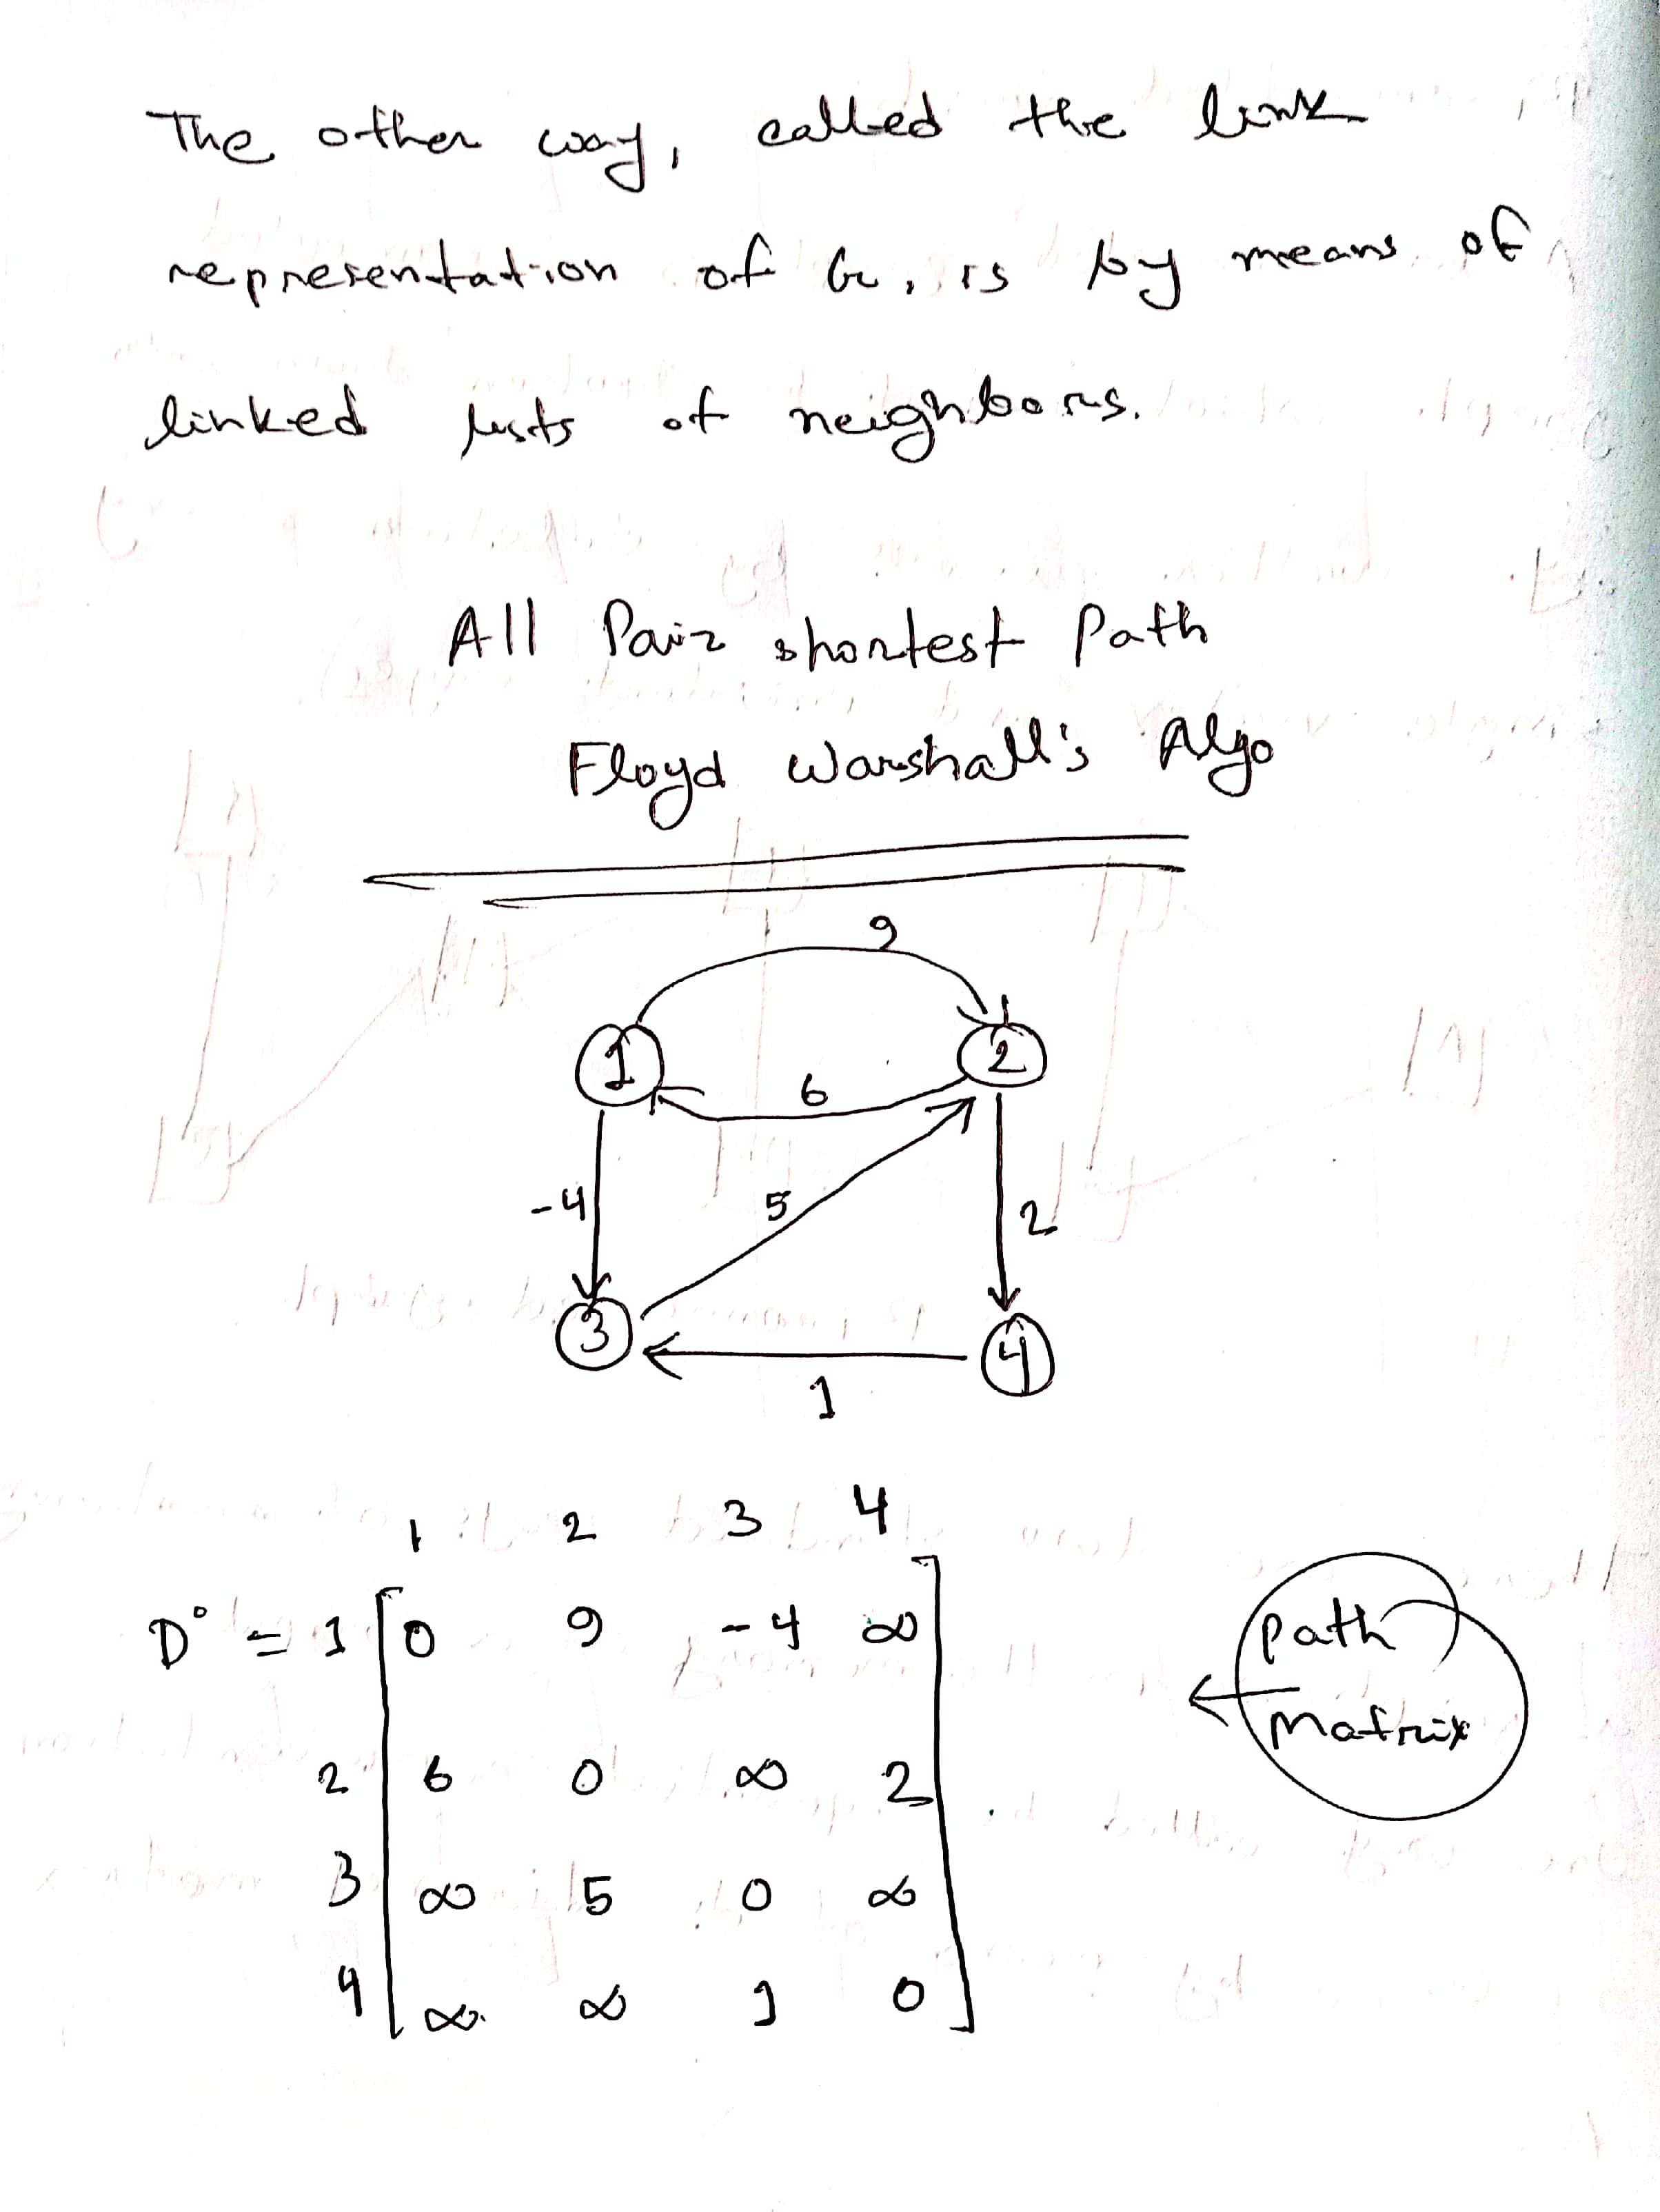 The other way, called the link
representation of G, is by means of
linked lists of neighbors.
All Pair shortest Path
Floyd Warshall's Algo
9
1 2
6
-4 5 2
3 4
1
1 2 3 4
D° = 1 0 9 -4 ∞
2 6 0 ∞ 2
3 ∞ 5 0 ∞
4 ∞ ∞ 1 0
Path
Matrix